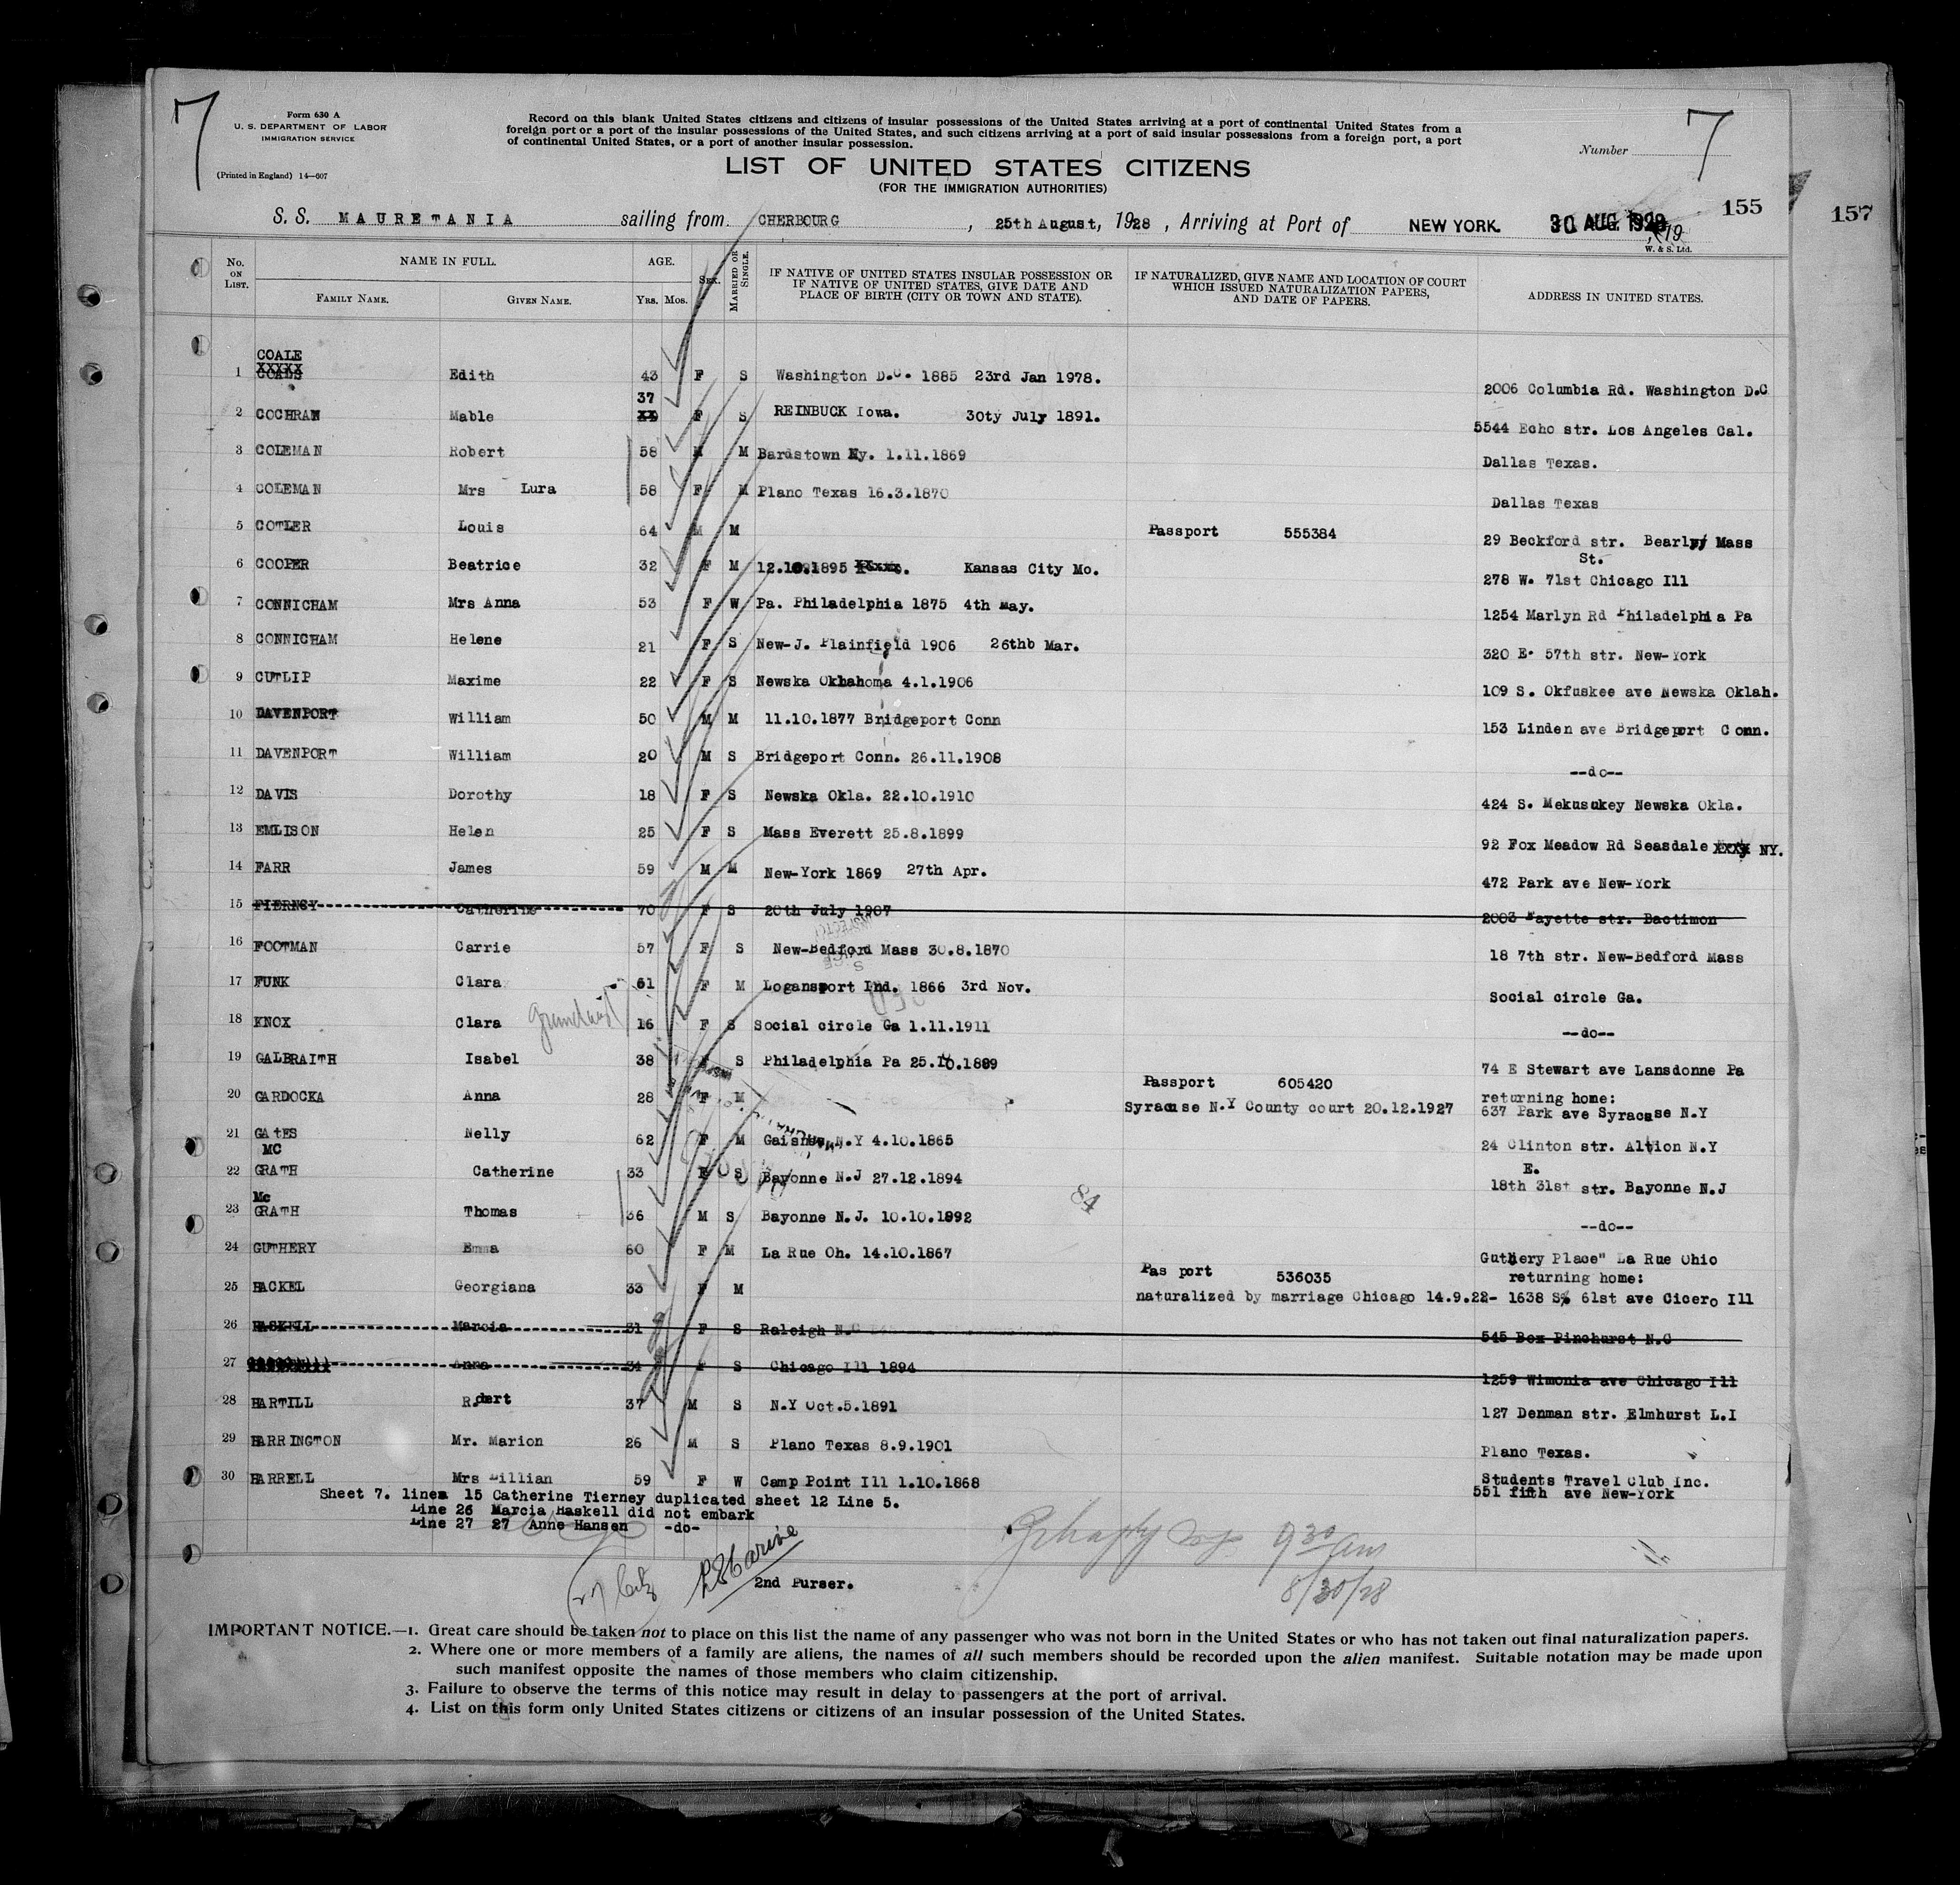 7
Form 630 A
U. S. DEPARTMENT OF LABOR
IMMIGRATION SERVICE
(Printed in England) 14—607
Record on this blank United States citizens and citizens of insular possessions of the United States arriving at a port of continental United States from a
foreign port or a port of the insular possessions of the United States, and such citizens arriving at a port of said insular possessions from a foreign port, a port
of continental United States, or a port of another insular possession.
LIST OF UNITED STATES CITIZENS
(FOR THE IMMIGRATION AUTHORITIES)
Number 7
155
157
S. S. MAURETANIA sailing from CHERBOURG , 25th August, 1928 , Arriving at Port of NEW YORK. 30 AUG 1928 , 19
W. & S. Ltd.
No. ON LIST. NAME IN FULL. AGE. SEX. MARRIED OR SINGLE. IF NATIVE OF UNITED STATES INSULAR POSSESSION OR IF NATIVE OF UNITED STATES, GIVE DATE AND PLACE OF BIRTH (CITY OR TOWN AND STATE). IF NATURALIZED, GIVE NAME AND LOCATION OF COURT WHICH ISSUED NATURALIZATION PAPERS, AND DATE OF PAPERS. ADDRESS IN UNITED STATES.
FAMILY NAME. GIVEN NAME. YRS. MOS.
COALE
XXXXX
1 COADS Edith 43 F S Washington D.C. 1885 23rd Jan 1978. 2006 Columbia Rd. Washington D.C
37
2 COCHRAN Mable XX F S REINBUCK Iowa. 30ty July 1891. 5544 Echo str. Los Angeles Cal.
3 COLEMAN Robert 58 M M Bardstown Ky. 1.11.1869 Dallas Texas.
4 COLEMAN Mrs Lura 58 F M Plano Texas 16.3.1870 Dallas Texas
5 COTLER Louis 64 M M Passport 555384 29 Beckford str. Mass
St.
6 COOPER Beatrice 32 F M 12.10.1895 Kansas City Mo. 278 W. 71st Chicago Ill
7 CONNICHAM Mrs Anna 53 F W Pa. Philadelphia 1875 4th May. 1254 Marlyn Rd Philadelphia Pa
8 CONNICHAM Helene 21 F S New-J. Plainfield 1906 26thb Mar. 320 E. 57th str. New-York
9 CUTLIP Maxime 22 F S Newska Oklahoma 4.1.1906 109 S. Okfuskee ave Newska Oklah.
10 DAVENPORT William 50 M M 11.10.1877 Bridgeport Conn 153 Linden ave Bridgeport Conn.
11 DAVENPORT William 20 M S Bridgeport Conn. 26.11.1908 --do--
12 DAVIS Dorothy 18 F S Newska Okla. 22.10.1910 424 S. Mekusukey Newska Okla.
13 EMLISON Helen 25 F S Mass Everett 25.8.1899 92 Fox Meadow Rd Seasdale XXXX NY.
14 FARR James 59 M M New-York 1869 27th Apr. 472 Park ave New-York
15 FIERNSY Catherine 70 F S 20th July 1907 2003 Fayette str. Bactimon
16 FOOTMAN Carrie 57 F S New-Bedford Mass 30.8.1870 18 7th str. New-Bedford Mass
17 FUNK Clara 61 F M Logansport Ind. 1866 3rd Nov. Social circle Ga.
18 KNOX Clara grandchild 16 F S Social circle Ga 1.11.1911 --do--
19 GALBRAITH Isabel 38 F S Philadelphia Pa 25.10.1889 74 E Stewart ave Lansdonne Pa
Passport 605420 returning home:
20 GARDOCKA Anna 28 F M Syracuse N.Y County court 20.12.1927 637 Park ave Syracuse N.Y
21 GATES Nelly 62 F M N.Y 4.10.1865 24 Clinton str. Altion N.Y
MC E.
22 GRATH Catherine 33 F S Bayonne N.J 27.12.1894 18th 31st str. Bayonne N.J
Mc 84
23 GRATH Thomas 36 M S Bayonne N.J. 10.10.1892 --do--
24 GUTHERY Emma 60 F M La Rue Oh. 14.10.1867 Guthery Place" La Rue Ohio
Pas port 536035 returning home:
25 HACKEL Georgiana 33 F M naturalized by marriage Chicago 14.9.22- 1638 S. 61st ave Cicero Ill
26 HASKELL Marcia 31 F S Raleigh N.C 545 Box Pinehurst N.C
27 Anna 34 F S Chicago Ill 1894 1259 Wimonia ave Chicago Ill
28 HARTILL Robert 37 M S N.Y Oct.5.1891 127 Denman str. Elmhurst L.I
29 HARRINGTON Mr. Marion 26 M S Plano Texas 8.9.1901 Plano Texas.
30 HARRELL Mrs Lillian 59 F W Camp Point Ill 1.10.1868 Students Travel Club Inc.
551 fifth ave New-York
Sheet 7. lines 15 Catherine Tierney duplicated sheet 12 Line 5.
Line 26 Marcia Haskell did not embark
Line 27 27 Anne Hansen -do-
9 30 am
8/30/28
2nd Purser.
IMPORTANT NOTICE.—1. Great care should be taken not to place on this list the name of any passenger who was not born in the United States or who has not taken out final naturalization papers.
2. Where one or more members of a family are aliens, the names of all such members should be recorded upon the alien manifest. Suitable notation may be made upon
such manifest opposite the names of those members who claim citizenship.
3. Failure to observe the terms of this notice may result in delay to passengers at the port of arrival.
4. List on this form only United States citizens or citizens of an insular possession of the United States.